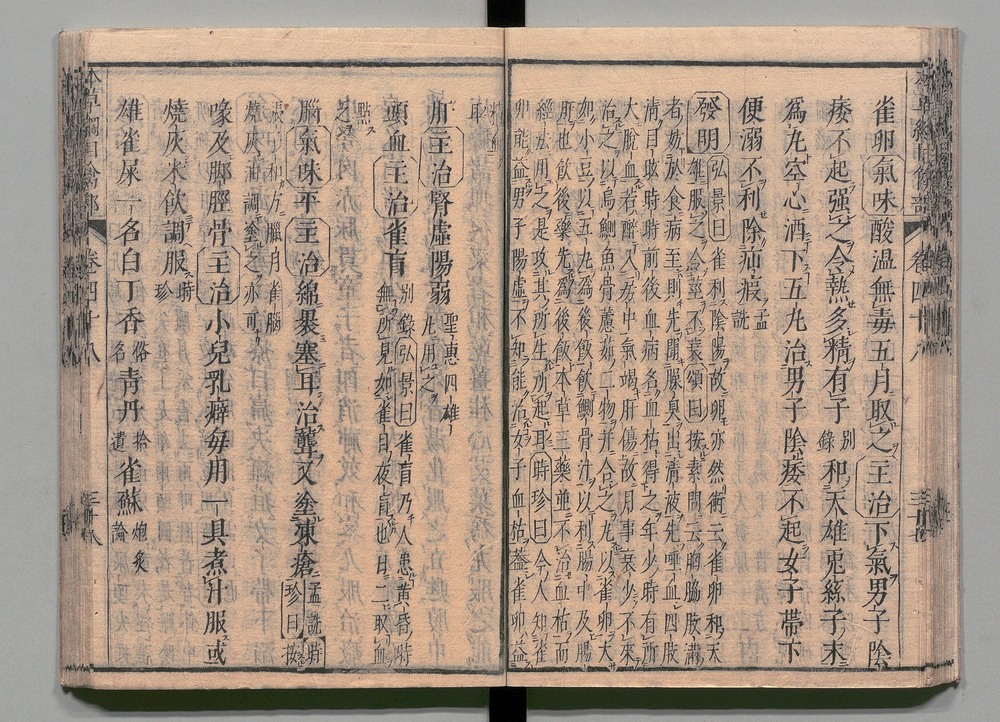 雀卵氣味酸溫無毒五月取之主治下氣男子陰
痿不起強之令熱多精有子別錄和天雄兎絲子末
爲丸空心酒下五丸治男子陰痿不起女子帶下
便溺不利除疝瘕孟詵
發明弘景曰雀利陰陽故卵亦然術云雀卵和天
雄服之令莖不衰頌曰按素問云胸脇肢滿
者妨於食病至則先聞腥臭出清液先唾血四肢
清目眩時時前後血病名血枯得之年少時有所
大脫血若醉入房中氣竭肝傷故月事衰少不來
治之以烏鰂魚骨藘茹二物并合之丸以雀卵大
如小豆以五丸爲後飯飲鮑魚汁以利腸中及傷
肝也飲後藥先爲後飯本草三藥並不治血枯而
經法用之是攻其所生所起耳時珍曰今人知雀
卵能益男子陽虛不知能治女子血枯蓋雀卵益
主治腎虛陽弱聖惠四雄丸用之
頭血主治雀盲別錄弘景曰雀盲乃人患黃昏時
無所見如雀目夜盲也日二取血
點之
腦氣味平主治綿裹塞耳治聾又塗凍瘡孟詵時珍曰按
張子和方臘月雀腦
燒灰油調塗之亦可
喙及脚脛骨主治小兒乳癖每用一具煮汁服或
燒灰米飲調服時珍
雄雀屎一名白丁香俗名青丹拾遺雀蘇炮炙論
卷四十八